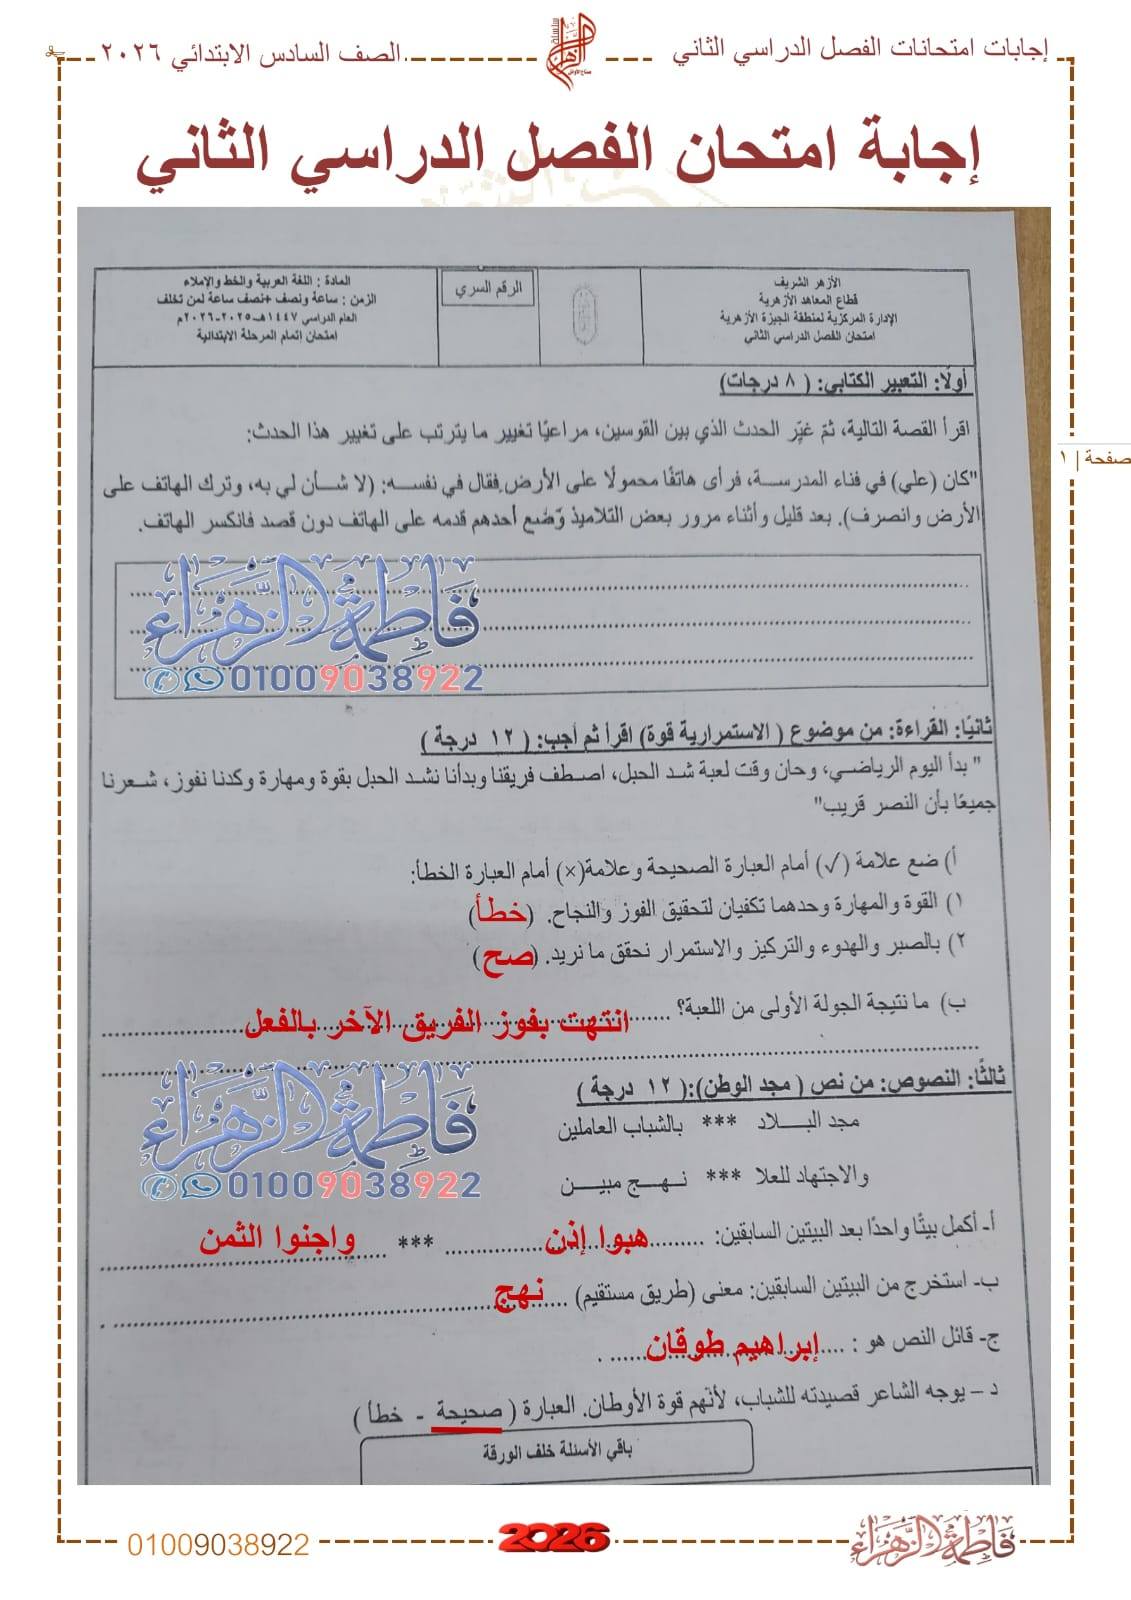 إجابات امتحانات الفصل الدراسي الثاني
الصف السادس الابتدائي ٢٠٢٦
إجابة امتحان الفصل الدراسي الثاني
صفحة | ١
الأزهر الشريف
قطاع المعاهد الأزهرية
الإدارة المركزية لمنطقة الجيزة الأزهرية
امتحان الفصل الدراسي الثاني
الرقم السري
المادة : اللغة العربية والخط والإملاء
الزمن : ساعة ونصف +نصف ساعة لمن تخلف
العام الدراسي ١٤٤٧هـ-٢٠٢٥-٢٠٢٦م
امتحان إتمام المرحلة الابتدائية
أولًا: التعبير الكتابي: ( ٨ درجات)
اقرأ القصة التالية، ثم غيِّر الحدث الذي بين القوسين، مراعيًا تغيير ما يترتب على تغيير هذا الحدث:
"كان (علي) في فناء المدرسة، فرأى هاتفًا محمولًا على الأرض.فقال في نفسه: (لا شأن لي به، وترك الهاتف على
الأرض وانصرف). بعد قليل وأثناء مرور بعض التلاميذ وَضَع أحدهم قدمه على الهاتف دون قصد فانكسر الهاتف.
فاطمة الزهراء
01009038922
ثانيًا: القراءة: من موضوع ( الاستمرارية قوة) اقرأ ثم أجب: ( ١٢ درجة )
" بدأ اليوم الرياضي، وحان وقت لعبة شد الحبل، اصطف فريقنا وبدأنا نشد الحبل بقوة ومهارة وكدنا نفوز، شعرنا
جميعًا بأن النصر قريب"
أ) ضع علامة (✓) أمام العبارة الصحيحة وعلامة(×) أمام العبارة الخطأ:
١) القوة والمهارة وحدهما تكفيان لتحقيق الفوز والنجاح. (خطأ)
٢) بالصبر والهدوء والتركيز والاستمرار نحقق ما نريد. (صح)
ب) ما نتيجة الجولة الأولى من اللعبة؟ انتهت بفوز الفريق الآخر بالفعل
ثالثًا: النصوص: من نص ( مجد الوطن):( ١٢ درجة )
فاطمة الزهراء
01009038922
مجد البلاد *** بالشباب العاملين
والاجتهاد للعلا *** نهج مبين
أ- أكمل بيتًا واحدًا بعد البيتين السابقين: هبوا إذن *** واجنوا الثمن
ب- استخرج من البيتين السابقين: معنى (طريق مستقيم) نهج
ج- قائل النص هو : إبراهيم طوقان
د – يوجه الشاعر قصيدته للشباب، لأنهم قوة الأوطان. العبارة ( صحيحة - خطأ )
باقي الأسئلة خلف الورقة
فاطمة الزهراء
2026
01009038922